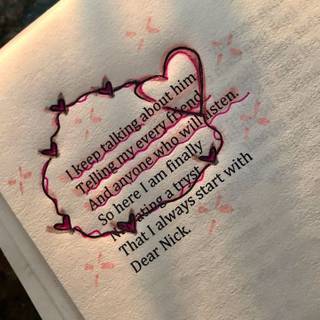 I keep talking about him
Telling my every friend
And anyone who will listen.
So here I am finally
a tryst
That I always start with
Dear Nick.